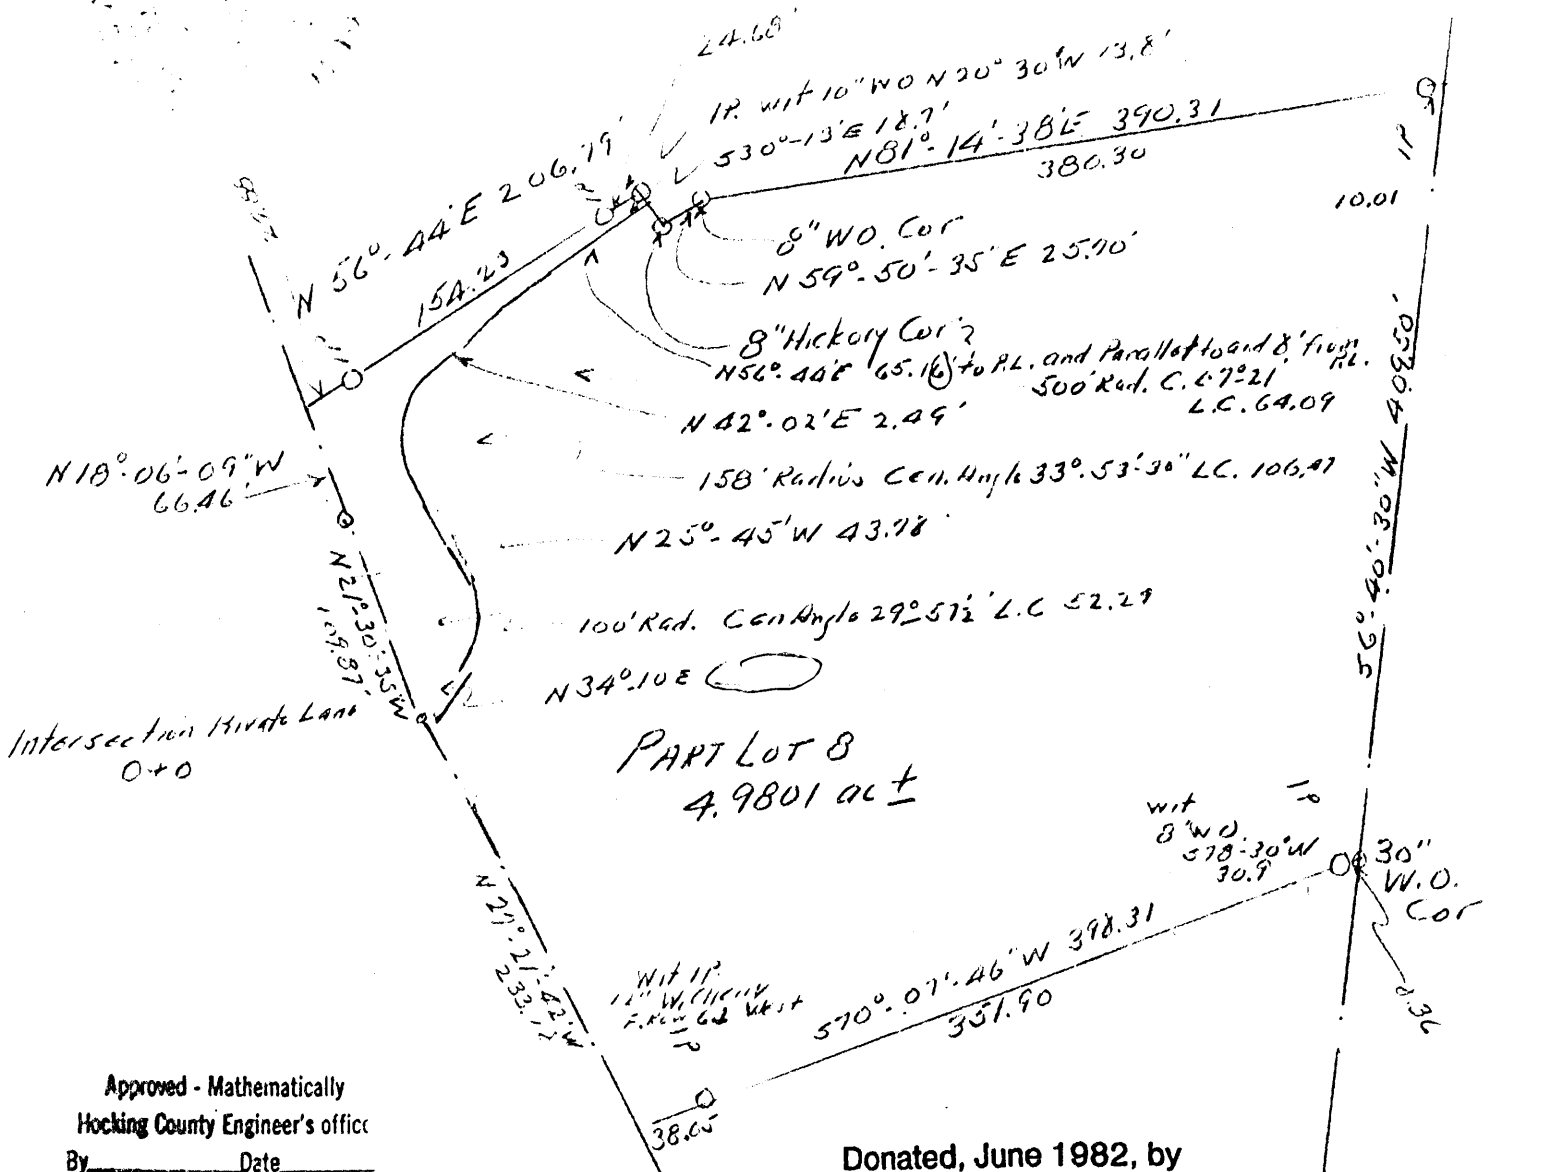 24.68'
IP. wit 10" WO N 20° 30' W 13.8'
S30°-13'E 18.7'
N81°-14'-38"E 390.31
380.30
IP
10.01
N 56°-44'E 206.79'
154.23
8" WO. Cor
N 59°-50'-35"E 25.70'
8" Hickory Cor
N56°-44'E 65.16' to P.L. and Parallel to and 8' from P.L.
500' Rad. C.L 7°-21'
L.C. 64.09
N 42°-02'E 2.49'
N 18°-06'-09"W
66.46'
158' Radius Cen. Angle 33°-53'-30" LC. 106.97
N 25°-45'W 43.78'
N 21°-30'-35"W
109.87'
100' Rad. Cen Angle 29°-57½' L.C 52.29
N 34°-10 E
Intersection Private Lane
0+0
S6°-40'-30"W 409.50'
PART LOT 8
4.9801 ac ±
wit
8" WO
S78°-30'W
30.9
IP
30"
W.O.
Cor
8.36
N 27°-21'-42"W
Wit IP.
W. Cherry
West
IP
S70°-07'-46"W 398.31
351.90
38.05
Approved - Mathematically
Hocking County Engineer's office
By Date
Donated, June 1982, by